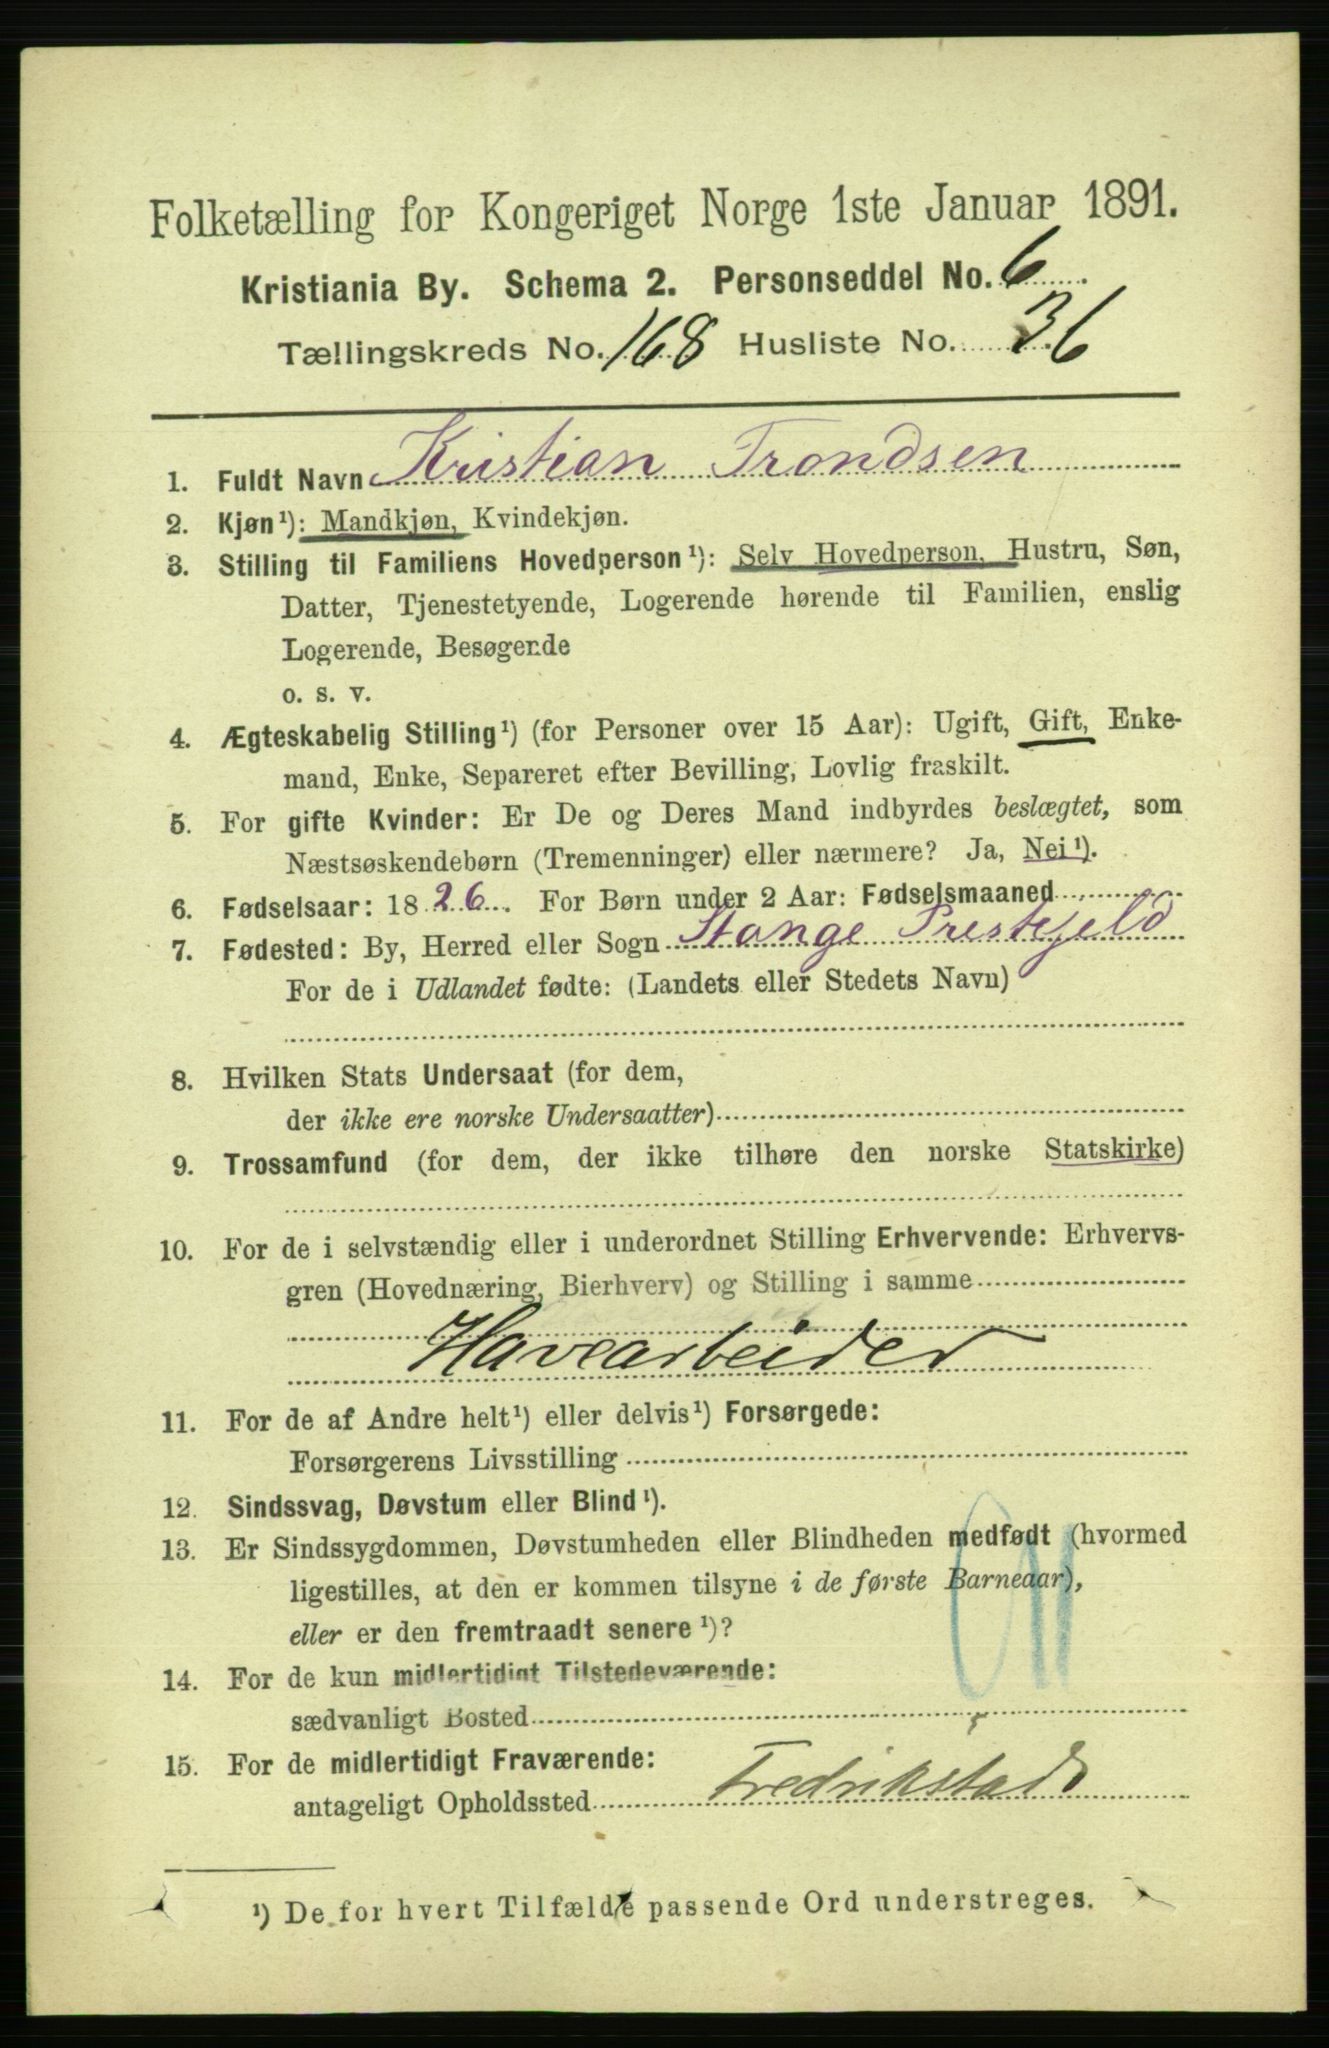 Folketælling for Kongeriget Norge 1ste Januar 1891.
Kristiania By. Schema 2. Personseddel No. 6
Tællingskreds No. 168 Husliste No. 36
1. Fuldt Navn Kristian Trondsen
2. Kjøn¹): Mandkjøn, Kvindekjøn.
3. Stilling til Familiens Hovedperson¹): Selv Hovedperson, Hustru, Søn,
Datter, Tjenestetyende, Logerende hørende til Familien, enslig
Logerende, Besøgende
o. s. v.
4. Ægteskabelig Stilling¹) (for Personer over 15 Aar): Ugift, Gift, Enke-
mand, Enke, Separeret efter Bevilling, Lovlig fraskilt.
5. For gifte Kvinder: Er De og Deres Mand indbyrdes beslægtet, som
Næstsøskendebørn (Tremenninger) eller nærmere? Ja, Nei¹).
6. Fødselsaar: 1826. For Børn under 2 Aar: Fødselsmaaned
7. Fødested: By, Herred eller Sogn Stange Prestegjeld
For de i Udlandet fødte: (Landets eller Stedets Navn)
8. Hvilken Stats Undersaat (for dem,
der ikke ere norske Undersaatter)
9. Trossamfund (for dem, der ikke tilhøre den norske Statskirke)
10. For de i selvstændig eller i underordnet Stilling Erhvervende: Erhvervs-
gren (Hovednæring, Bierhverv) og Stilling i samme
Havearbeider
11. For de af Andre helt¹) eller delvis¹) Forsørgede:
Forsørgerens Livsstilling
12. Sindssvag, Døvstum eller Blind¹).
13. Er Sindssygdommen, Døvstumheden eller Blindheden medfødt (hvormed
ligestilles, at den er kommen tilsyne i de første Barneaar),
eller er den fremtraadt senere¹)?
14. For de kun midlertidigt Tilstedeværende:
sædvanligt Bosted
15. For de midlertidigt Fraværende:
antageligt Opholdssted Fredrikstad
¹) De for hvert Tilfælde passende Ord understreges.